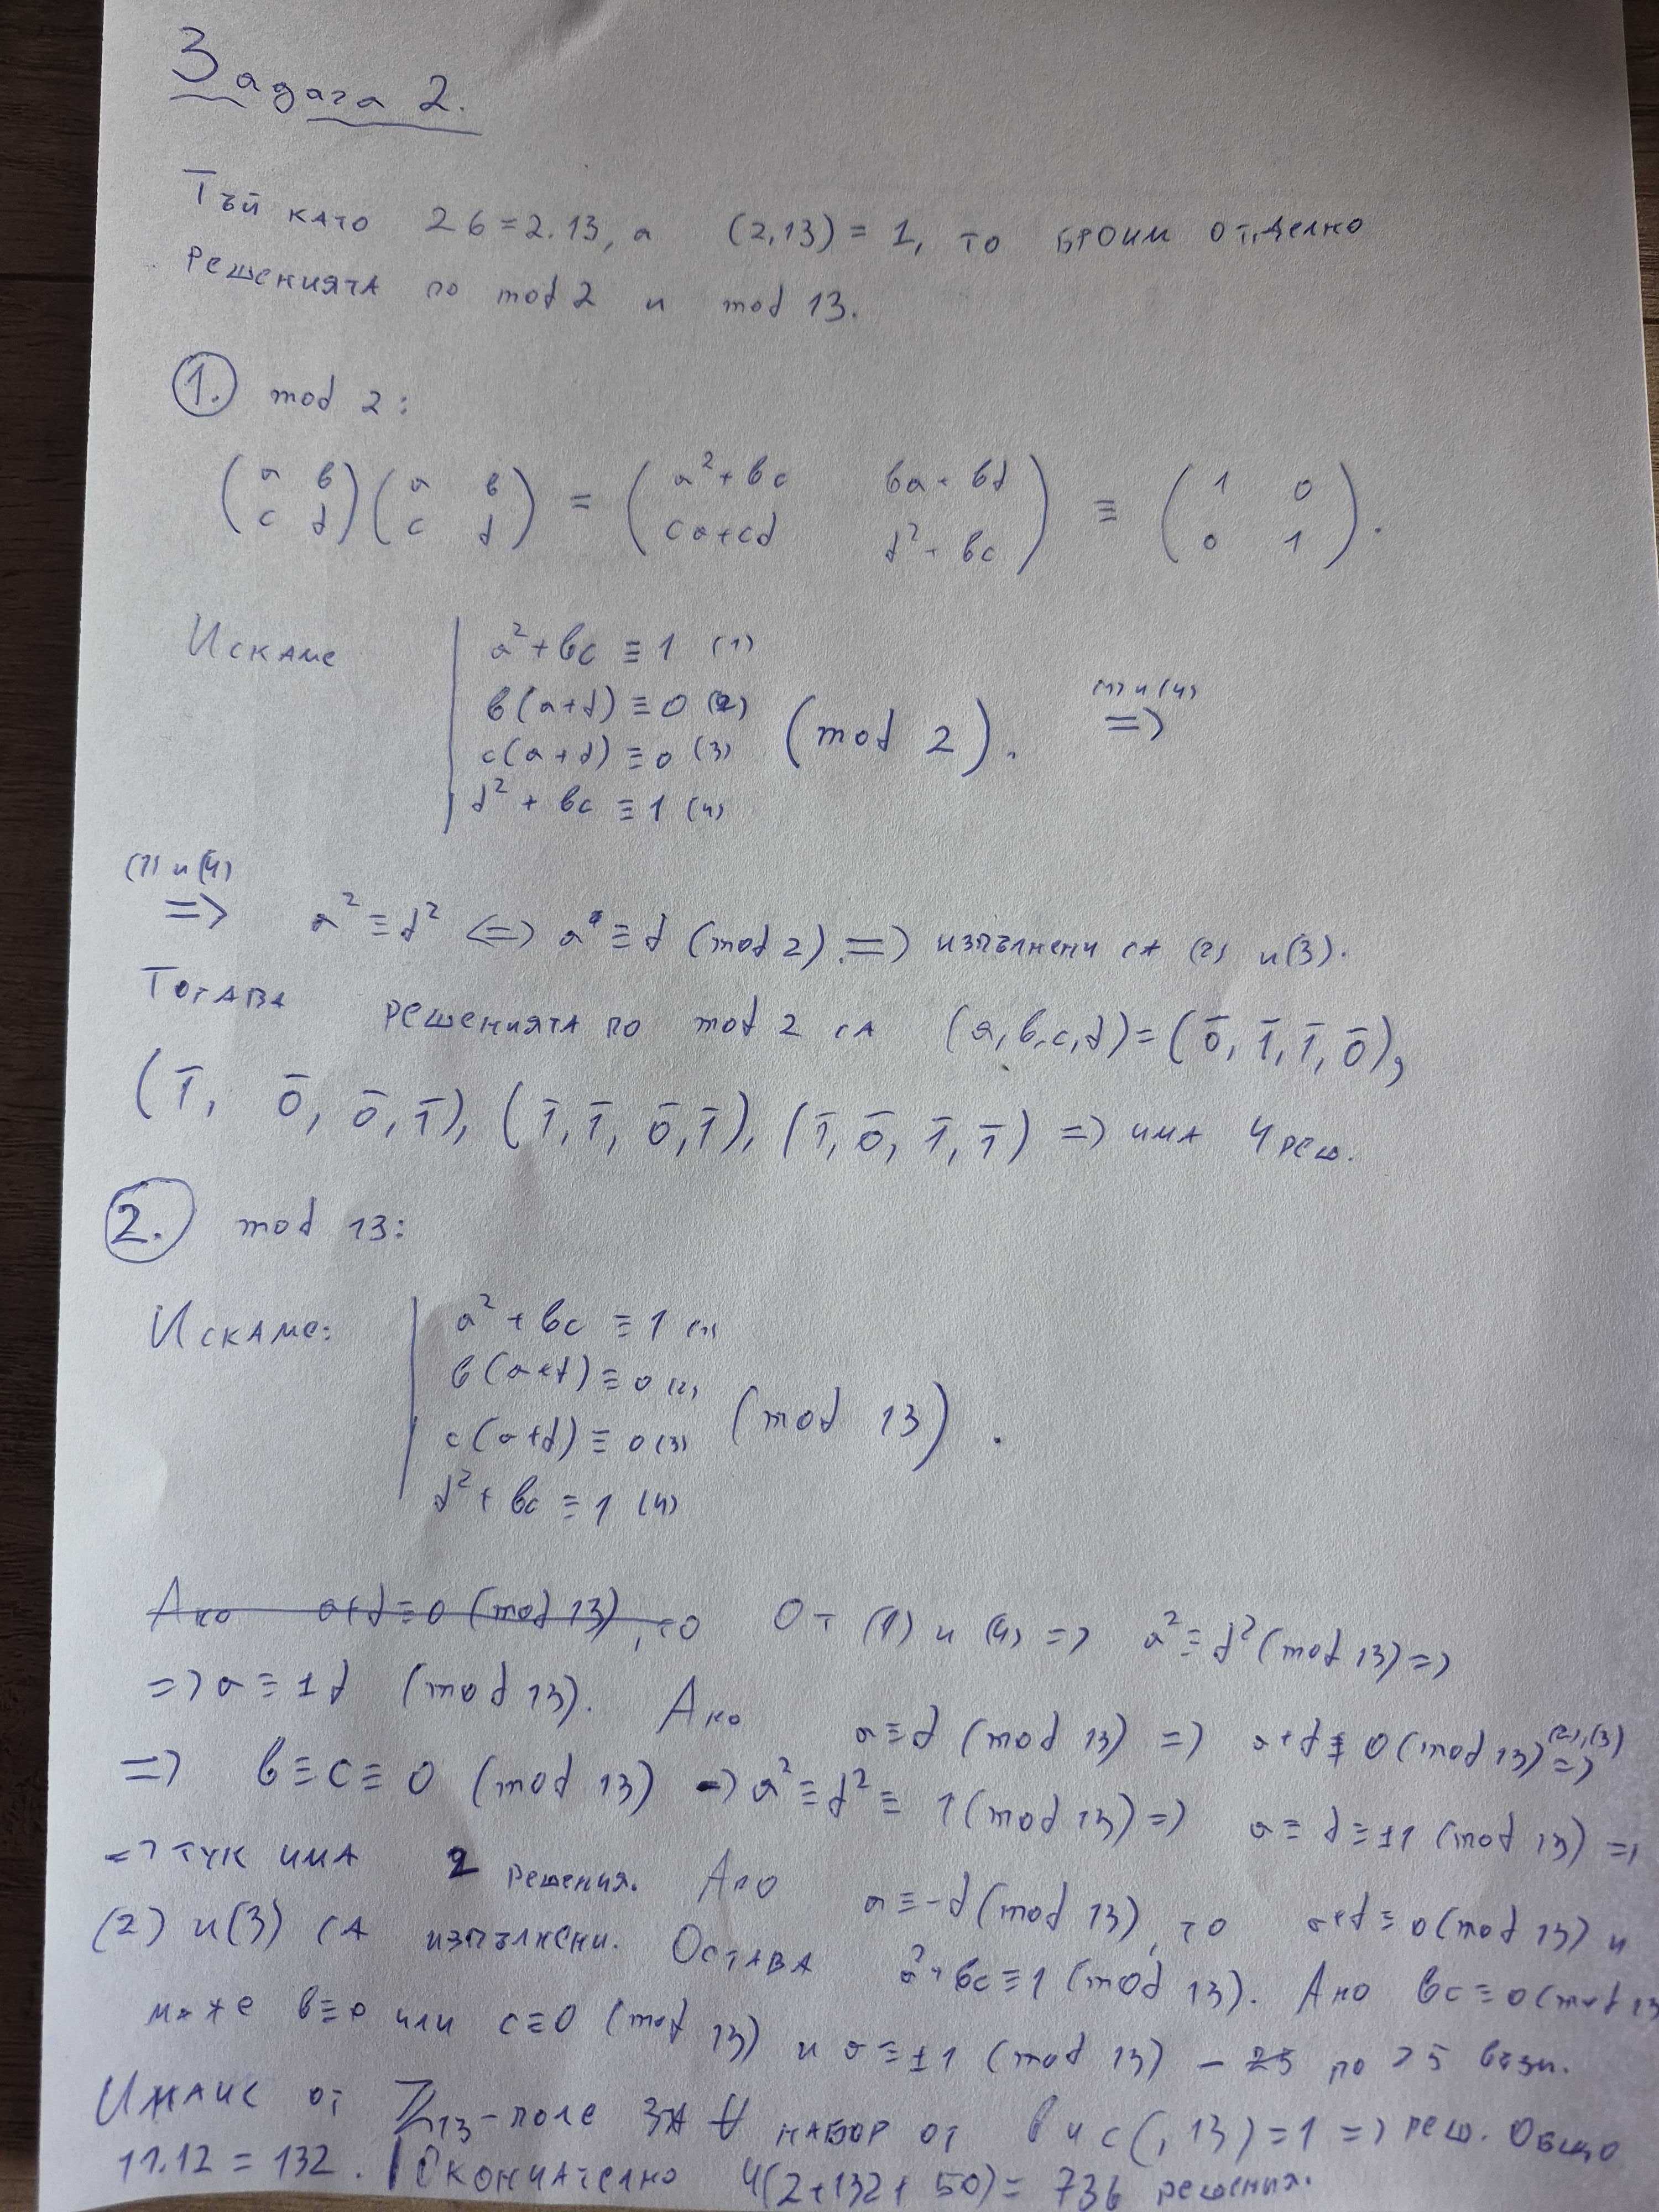 Задача 2.
Тъй като 26 = 2.13, а (2,13) = 1, то броим отделно
решенията по mod 2 и mod 13.
1. mod 2:
(a b; c d)(a b; c d) = (a²+bc ba+bd; ca+cd d²+bc) ≡ (1 0; 0 1).
Искаме | a²+bc ≡ 1 (1)
b(a+d) ≡ 0 (2)
c(a+d) ≡ 0 (3) (mod 2). (1) и (4) =>
d²+bc ≡ 1 (4)
(1) и (4)
=> a² ≡ d² <=> a ≡ d (mod 2). => изпълнени са (2) и (3).
Тогава решенията по mod 2 са (a,b,c,d) = (0̄, 1̄, 1̄, 0̄),
(1̄, 0̄, 0̄, 1̄), (1̄, 1̄, 0̄, 1̄), (1̄, 0̄, 1̄, 1̄) => има 4 реш.
2. mod 13:
Искаме: | a²+bc ≡ 1 (1)
b(a+d) ≡ 0 (2)
c(a+d) ≡ 0 (3) (mod 13).
d²+bc ≡ 1 (4)
Ако a+d ≡ 0 (mod 13), то От (1) и (4) => a² ≡ d² (mod 13) =>
=> a ≡ ±d (mod 13). Ако a ≡ d (mod 13) => a+d ≢ 0 (mod 13) (2),(3) =>
=> b ≡ c ≡ 0 (mod 13) => a² ≡ d² ≡ 1 (mod 13) => a ≡ d ≡ ±1 (mod 13) =>
=> тук има 2 решения. Ако a ≡ -d (mod 13), то a+d ≡ 0 (mod 13) и
(2) и (3) са изпълнени. Остава a²+bc ≡ 1 (mod 13). Ако bc ≡ 0 (mod 13
може b ≡ 0 или c ≡ 0 (mod 13) и a ≡ ±1 (mod 13) – 25 по 25 възм.
Имаме от Z₁₃-поле за ∀ набор от b и c (, 13) = 1 => реш. Общо
11.12 = 132. | Окончателно 4(2+132+50) = 736 решения.